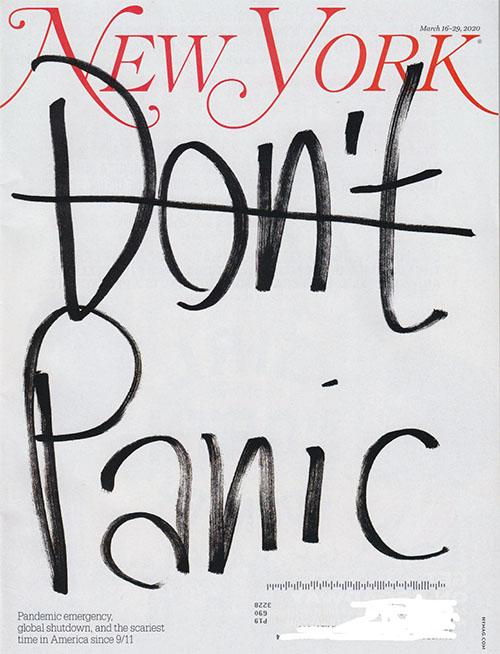 New York
March 16–29, 2020
Don't
Panic
Pandemic emergency,
global shutdown, and the scariest
time in America since 9/11
P19
690
3228
NYMAG.COM